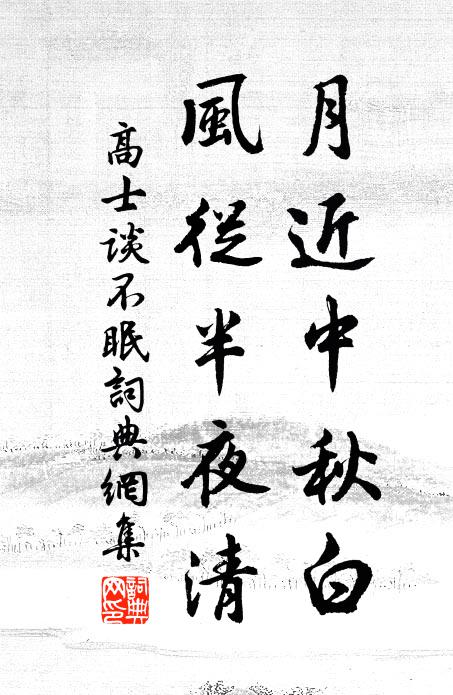 月近中秋白
風從半夜清
高士谈不眠詞典網集
詞典網印